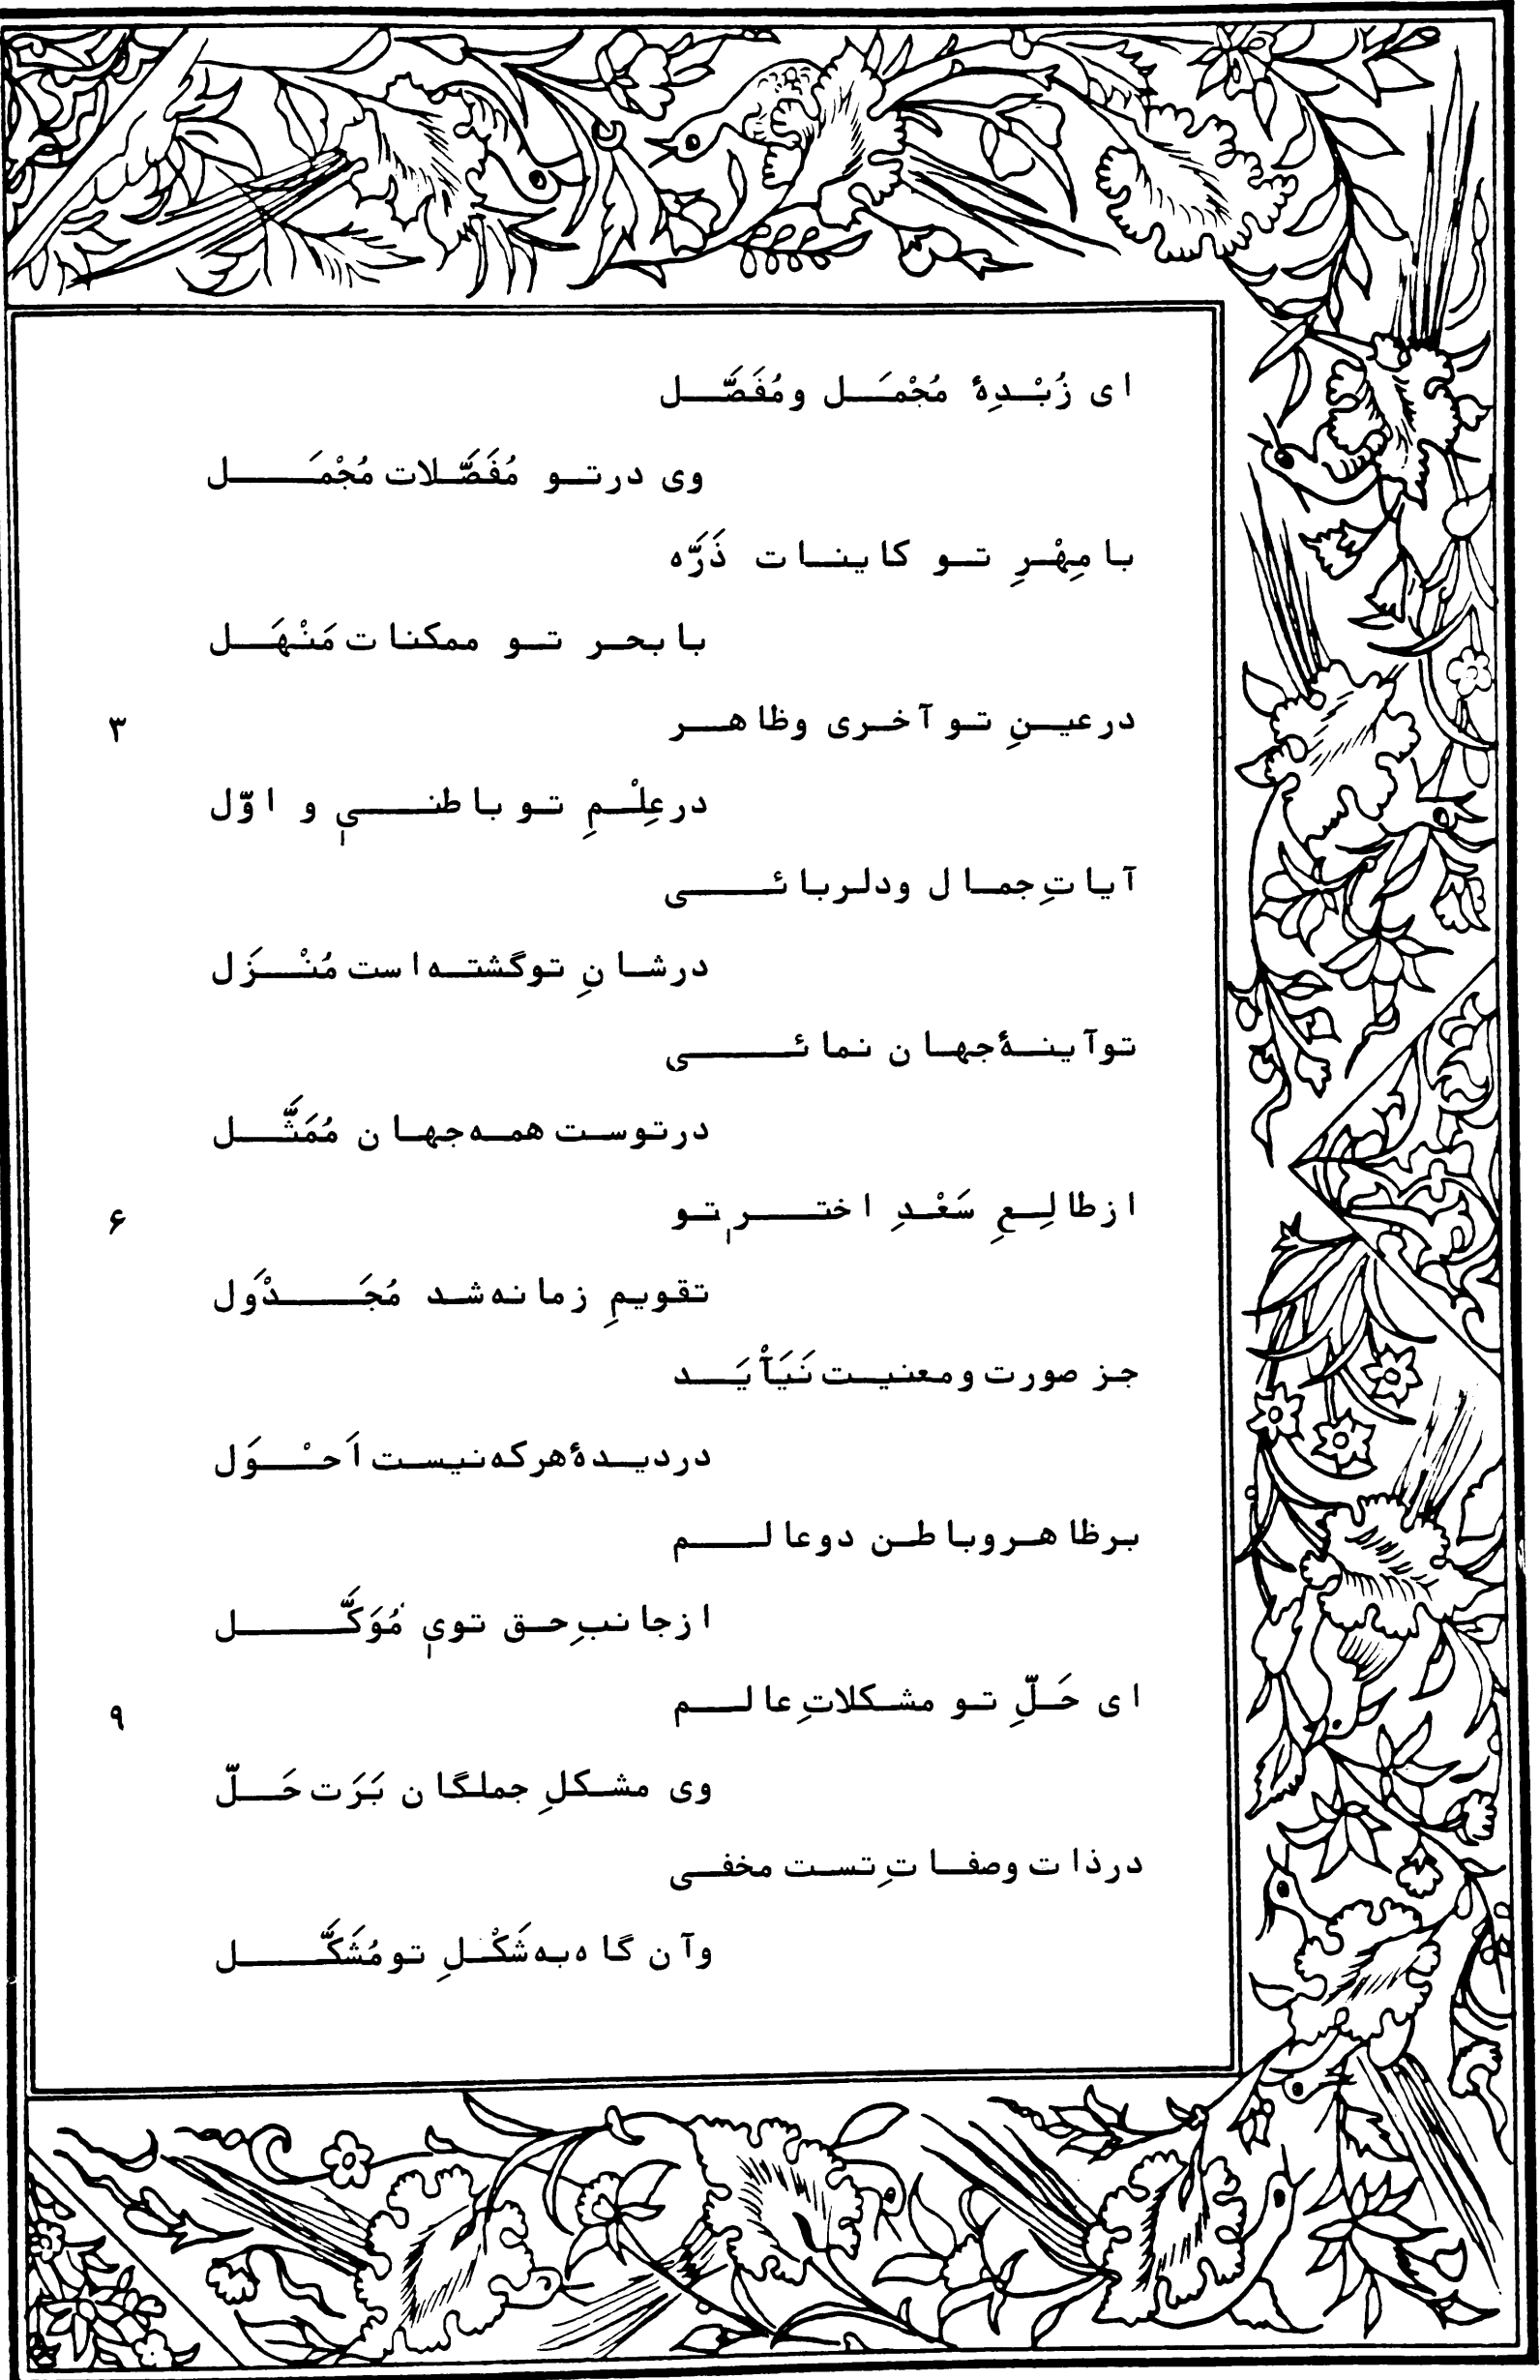 ای زُبْدِهٔ مُجْمَل ومُفَصَّل
وی درتو مُفَصَّلات مُجْمَل
با مِهْرِ تو کاینات ذَرَّه
با بحر تو ممکنات مَنْهَل
درعینِ تو آخری وظاهر ۳
درعِلْمِ تو باطنی و اوّل
آیاتِ جمال ودلربائی
درشانِ توگشته است مُنْزَل
توآینهٔ جهان نمائی
درتوست همه جهان مُمَثَّل
ازطالِعِ سَعْدِ اختر تو ۶
تقویمِ زمانه شد مُجَدْوَل
جز صورت ومعنیت نَیَآْیَد
دردیدهٔ هرکه نیست اَحْوَل
برظاهروباطن دوعالم
ازجانبِ حق توی مُوَکَّل
ای حَلِّ تو مشکلاتِ عالم ۹
وی مشکلِ جملگان بَرَت حَلّ
درذات وصفاتِ تست مخفی
وآن گاه به شَکْلِ تو مُشَکَّل